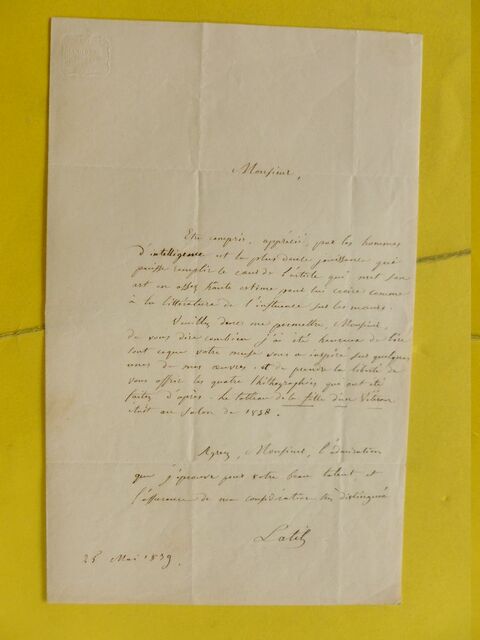 Monsieur,
Etre compris, apprécié, par les hommes
d'intelligence est la plus douce jouissance qui
puisse remplir le cœur de l'artiste qui met son
art en assez haute estime pour lui croire comme
à la littérature de l'influence sur les mœurs.
Veuillez donc me permettre, Monsieur,
de vous dire combien j'ai été heureux de lire
tout ce que votre muse vous a inspiré sur quelques
unes de mes œuvres, et de prendre la liberté de
vous offrir les quatre lithographies qui ont été
faites d'après le tableau de la fille d'un
était au Salon de 1838.
Agréez, Monsieur, l'admiration
que j'éprouve pour votre beau talent et
l'assurance de ma considération très distinguée
Latil
25 Mai 1839.